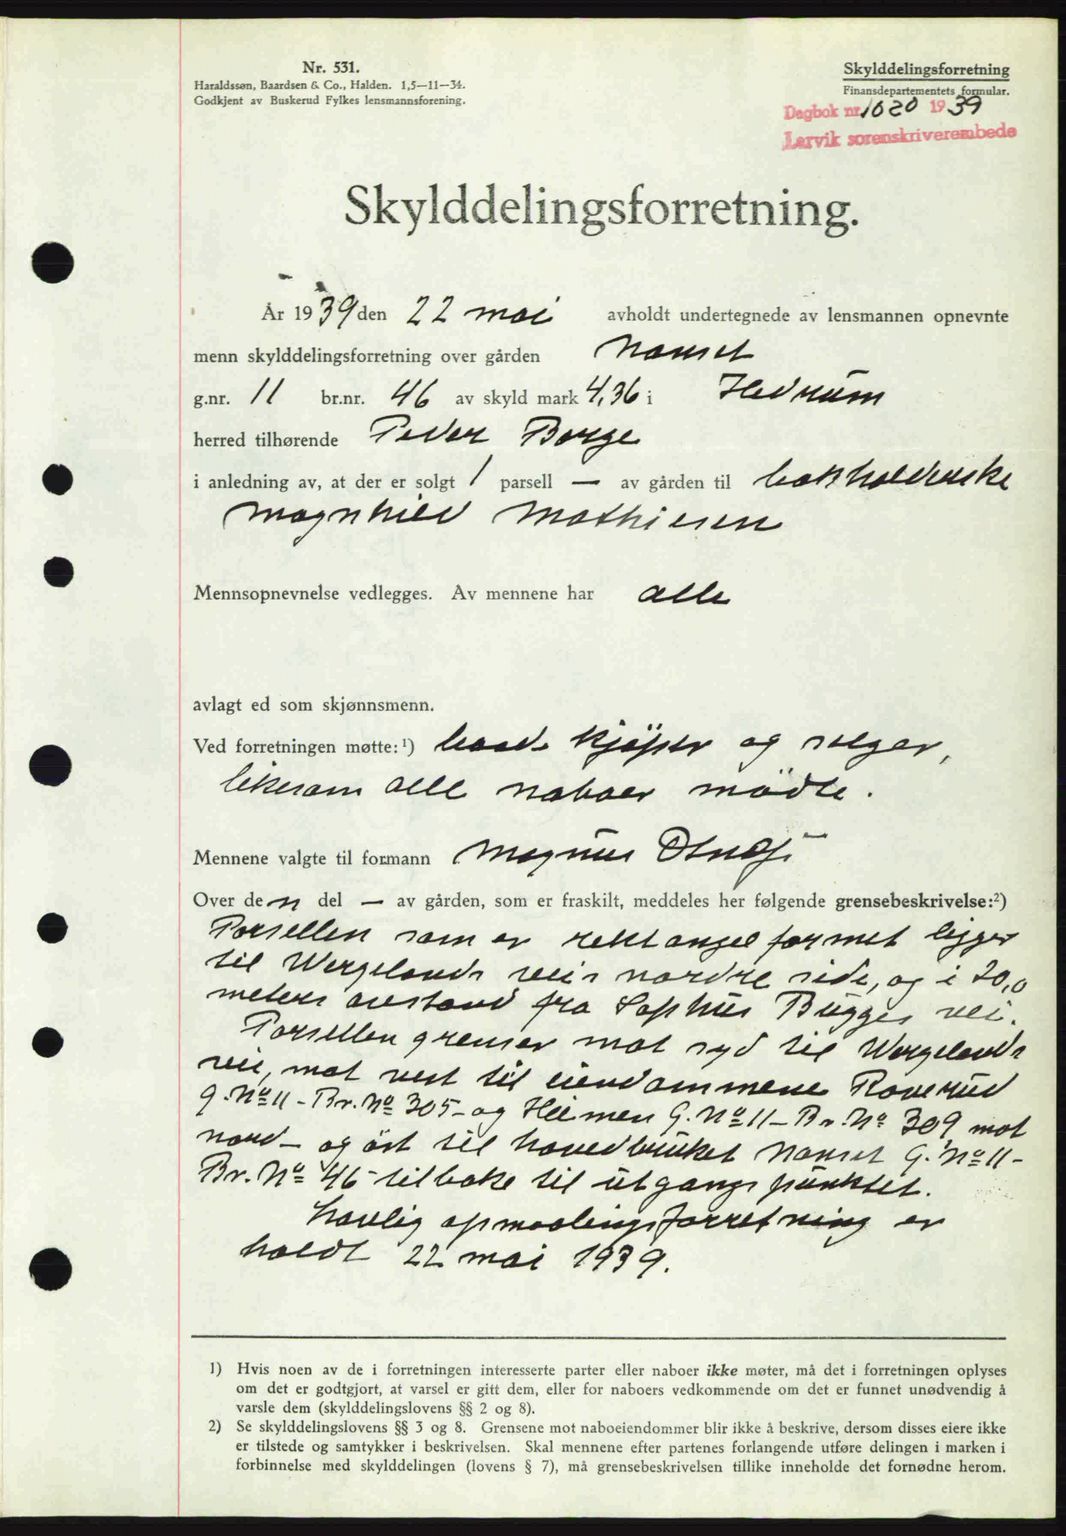 Nr. 531.
Haraldssøn, Baardsen & Co., Halden. 1,5—11—34.
Godkjent av Buskerud Fylkes lensmannsforening.
Skylddelingsforretning
Finansdepartementets formular.
Dagbok nr. 1020 1939
Larvik sorenskriverembede
Skylddelingsforretning.
År 1939 den 22 mai avholdt undertegnede av lensmannen opnevnte
menn skylddelingsforretning over gården Nanset
g.nr. 11 br.nr. 46 av skyld mark 4,36 i Hedrum
herred tilhørende Peder Borge
i anledning av, at der er solgt 1 parsell — av gården til bokholderske
Magnhild Mathisen
Mennsopnevnelse vedlegges. Av mennene har alle
avlagt ed som skjønnsmenn.
Ved forretningen møtte: ¹) baade kjöper og selger,
likesom alle naboer mödte.
Mennene valgte til formann Magnus
Over den del — av gården, som er fraskilt, meddeles her følgende grensebeskrivelse:²)
Parsellen som er rektangelformet ligger
til Wergelands vei's nordre side, og i 20,0
meters avstand fra Sophus Bugges vei.
Parsellen grenser mot syd til Wergelands
vei, mot vest til eiendommene Roverud
G. No 11 - Br. No 305 - og Heimen G. No 11 - Br. No 309 mot
nord - og öst til hovedbruket Nanset G. No 11 -
Br. No 46 tilbake til utgangspunktet.
Lovlig opmaalingsforretning er
holdt 22 mai 1939.
1) Hvis noen av de i forretningen interesserte parter eller naboer ikke møter, må det i forretningen oplyses
om det er godtgjort, at varsel er gitt dem, eller for naboers vedkommende om det er funnet unødvendig å
varsle dem (skylddelingslovens §§ 2 og 8).
2) Se skylddelingslovens §§ 3 og 8. Grensene mot naboeiendommer blir ikke å beskrive, dersom disses eiere ikke
er tilstede og samtykker i beskrivelsen. Skal mennene efter partenes forlangende utføre delingen i marken i
forbinnelse med skylddelingen (lovens § 7), må grensebeskrivelsen tillike inneholde det fornødne herom.